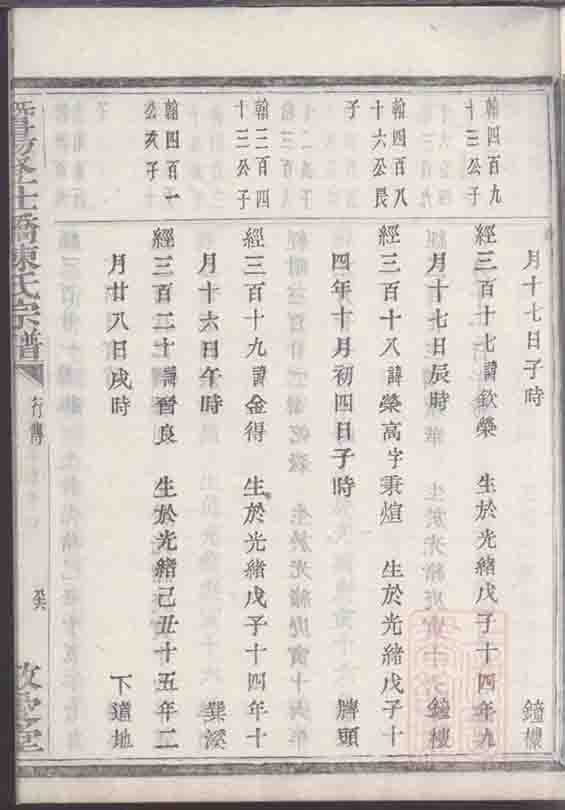 月十七日子時 鐘樓
翰四百九
十三公子
經三百十七諱欽榮 生於光緒戊子十四年九
月十七日辰時 鐘樓
翰四百八
十六公長
子
經三百十八諱榮高字秉煊 生於光緒戊子十
四年十月初四日子時 臍頭
翰三百四
十三公子
經三百十九諱金得 生於光緒戊子十四年十
月十六日午時 巽溪
翰四百十一
公亥子
經三百二十諱晉良 生於光緒己丑十五年二
月廿八日戌時 下道地
橋陳氏宗譜
行傳